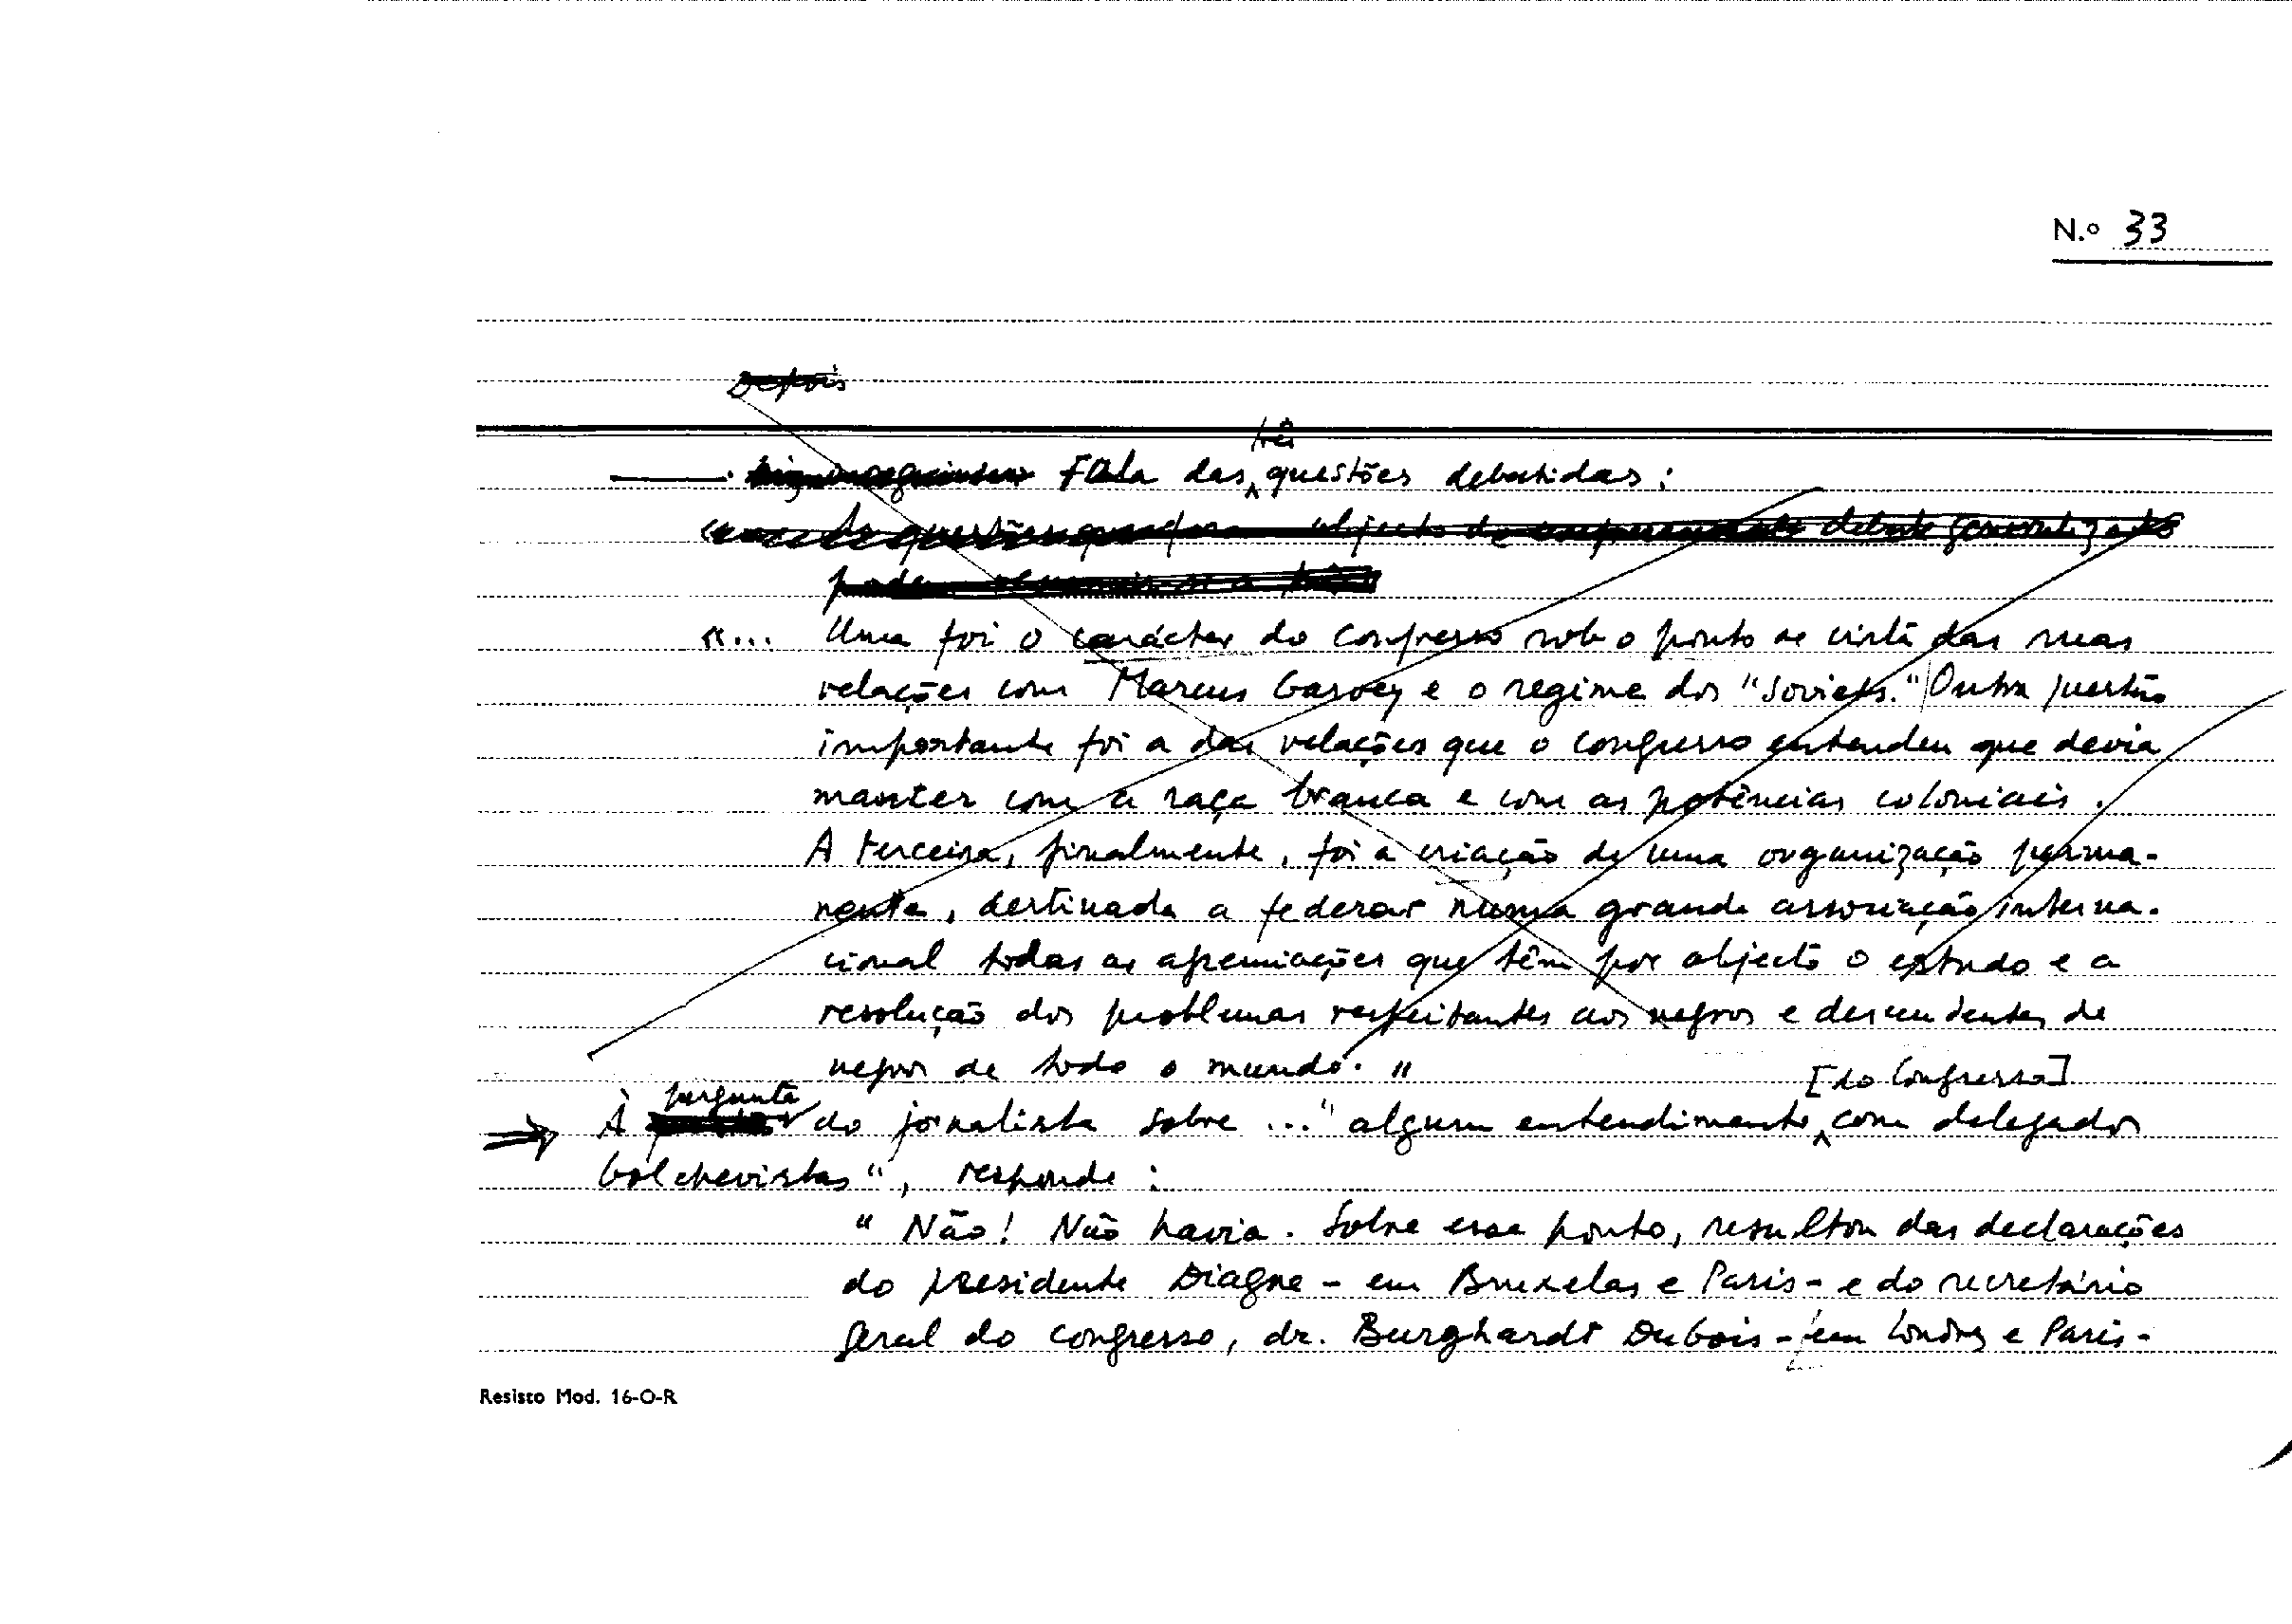 N.º 33
Depois
Fala das três questões debatidas:
objecto de debate generalizado
«... Uma foi o carácter do Congresso sob o ponto de vista das suas
relações com Marcus Garvey e o regime dos "Soviets." Outra questão
importante foi a das relações que o congresso entendeu que devia
manter com a raça branca e com as potências coloniais.
A terceira, finalmente, foi a criação de uma organização perma-
nente, destinada a federar numa grande associação interna-
cional todas as agremiações que têm por objecto o estudo e a
resolução dos problemas respeitantes aos negros e descendentes de
negros de todo o mundo. "
[do Congresso]
À pergunta do jornalista sobre ... "algum entendimento com delegados
bolchevistas", responde :
" Não! Não havia. Sobre esse ponto, resultou das declarações
do presidente Diagne - em Bruxelas e Paris - e do secretário
geral do congresso, dr. Burghardt DuBois - em Londres e Paris -
Resisto Mod. 16-O-R